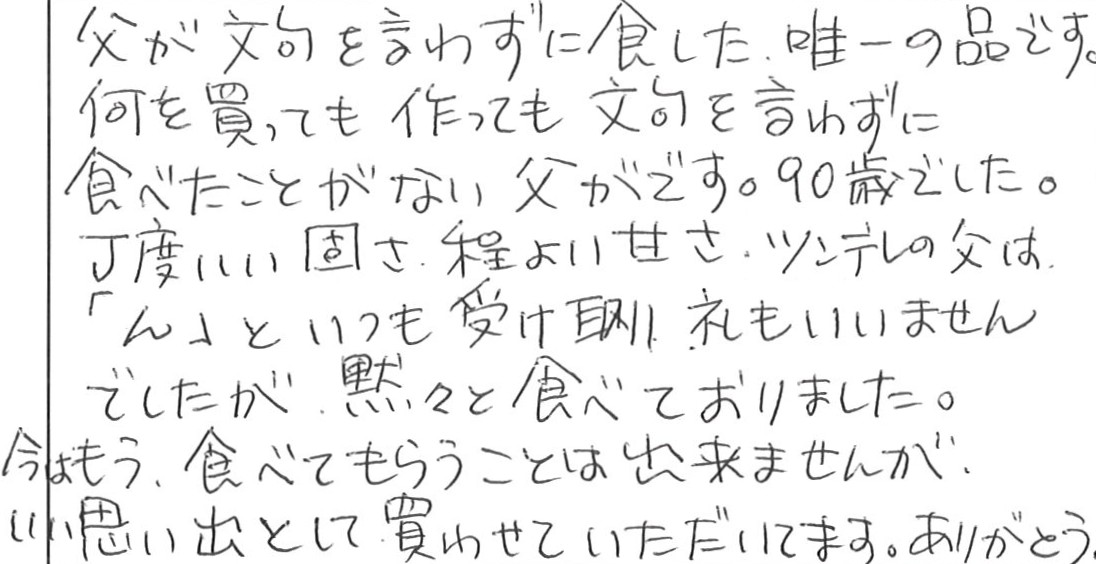 父が文句を言わずに食した、唯一の品です。
何を買っても作っても文句を言わずに
食べたことがない父がです。90歳でした。
丁度いい固さ、程よい甘さ、ツンデレの父は、
「ん」といつも受け取り、礼もいいません
でしたが、黙々と食べておりました。
今はもう、食べてもらうことは出来ませんが、
いい思い出として買わせていただいてます。ありがとう。